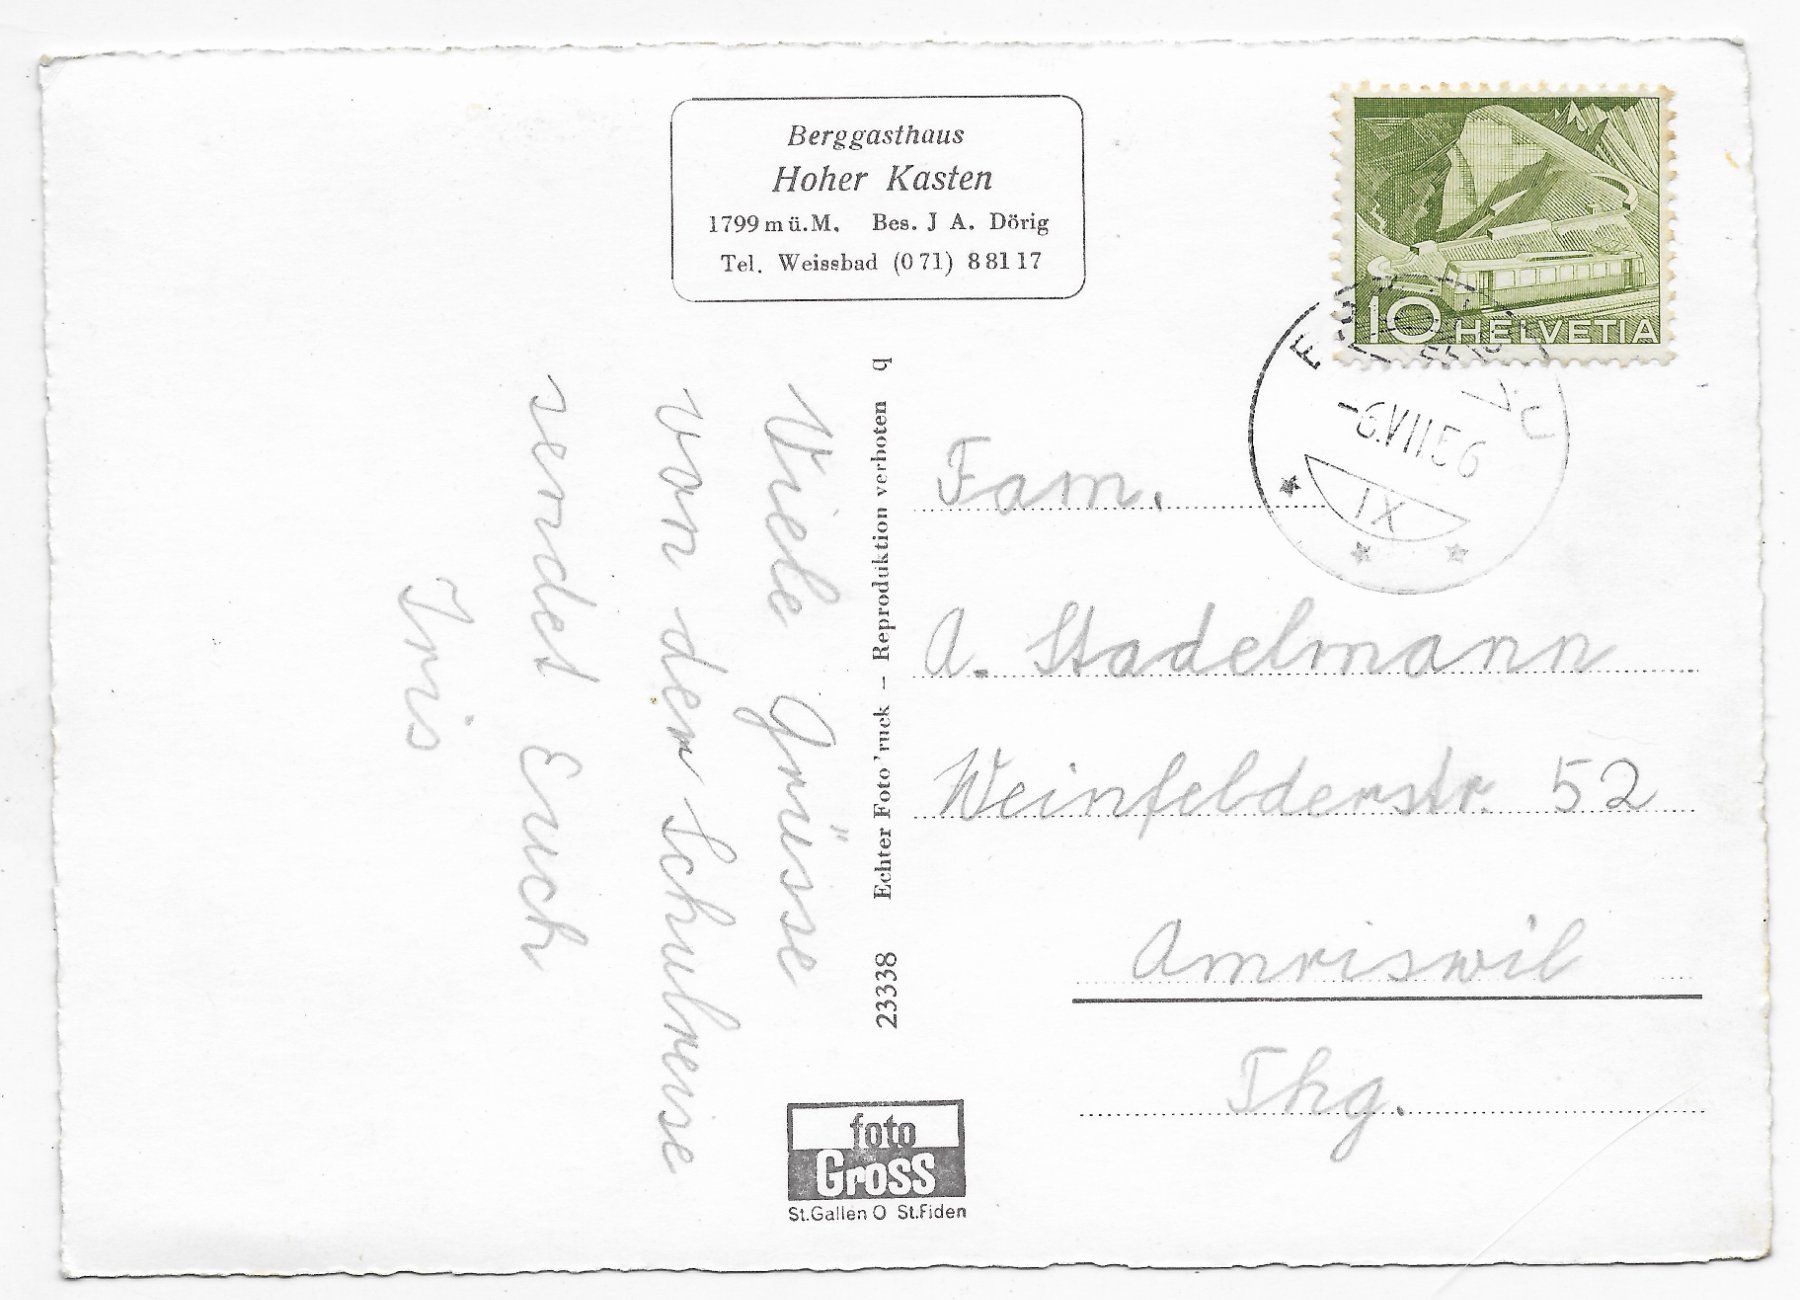 Berggasthaus
Hoher Kasten
1799 m ü. M. Bes. J A. Dörig
Tel. Weissbad (0 71) 8 81 17
10 HELVETIA
-6.VII 56
IX
Viele Grüsse
von der Schulreise
sendet Euch
Iris
23338 Echter Foto'ruck – Reproduktion verboten q
Fam.
A. Stadelmann
Weinfelderstr. 52
Amriswil
Thg.
foto
Gross
St.Gallen O St.Fiden